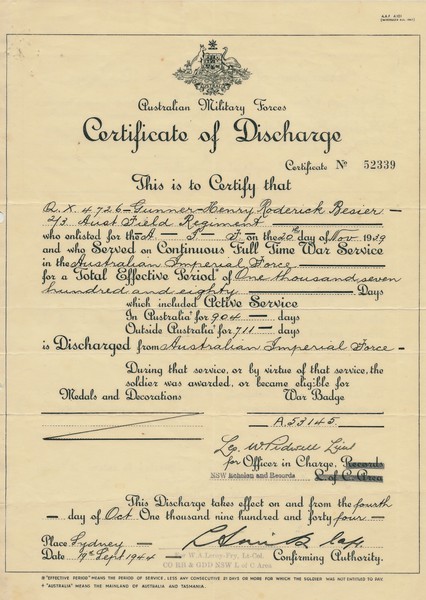 A.A.F. A 221
Australian Military Forces
Certificate of Discharge
Certificate No 52339
This is to Certify that
Q.X. 4726 - Gunner - Henry Roderick Besier -
2/3 Aust Field Regiment
who enlisted for the A. I. F. on the 20th day of Nov 1939
and who Served on Continuous Full Time War Service
in the Australian Imperial Force
for a Total Effective Period* of One thousand seven
hundred and eighty Days
which included Active Service
In Australia† for 904 — days
Outside Australia† for 711 — days
is Discharged from Australian Imperial Force -
During that service, or by virtue of that service, the
soldier was awarded, or became eligible for
Medals and Decorations War Badge
A53145
for Officer in Charge, Records
NSW Echelon and Records L of C. Area
This Discharge takes effect on and from the fourth
— day of Oct One thousand nine hundred and forty four —
Place Sydney -
Date Sept 1944 Confirming Authority.
Lt-Col.
CO RR & GDD NSW L of C Area
* "EFFECTIVE PERIOD" MEANS THE PERIOD OF SERVICE, LESS ANY CONSECUTIVE 21 DAYS OR MORE FOR WHICH THE SOLDIER WAS NOT ENTITLED TO PAY
† "AUSTRALIA" MEANS THE MAINLAND OF AUSTRALIA AND TASMANIA.